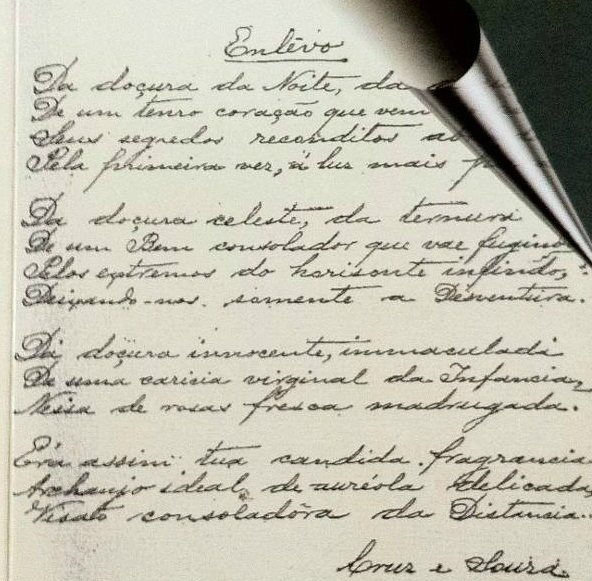 Enlêvo
Da doçura da Noite, da
De um tenro coração que vem
Seus segredos reconditos
Pela primeira vez, á luz mais
Da doçura celeste, da ternura
De um Bem consolador que vae fugindo
Pelos extremos do horisonte infindo,
Deixando-nos somente a Desventura.
Da doçura innocente, immaculada
De uma caricia virginal da Infancia,
Nessa de rosas fresca madrugada.
Era assim tua candida fragrancia
Archanjo ideal, de auréola delicada,
Visão consoladôra da Distancia...
Cruz e Souza.